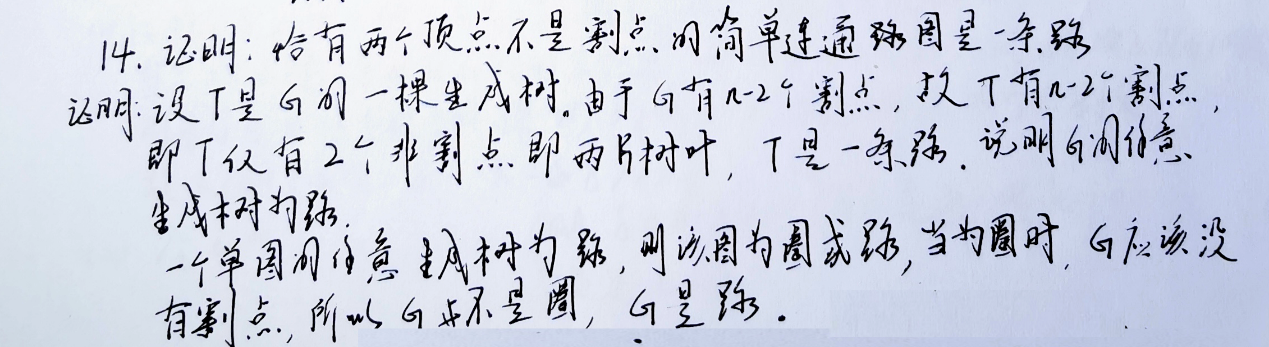 14. 证明:恰有两个顶点不是割点的简单连通路图是一条路
证明:设T是G的一棵生成树。由于G有n-2个割点,故T有n-2个割点,
即T仅有2个非割点即两片树叶,T是一条路.说明G的任意
生成树为路.
一个单图的任意生成树为路,则该图为圈或路,当为圈时,G应该没
有割点,所以G并不是圈,G是路.